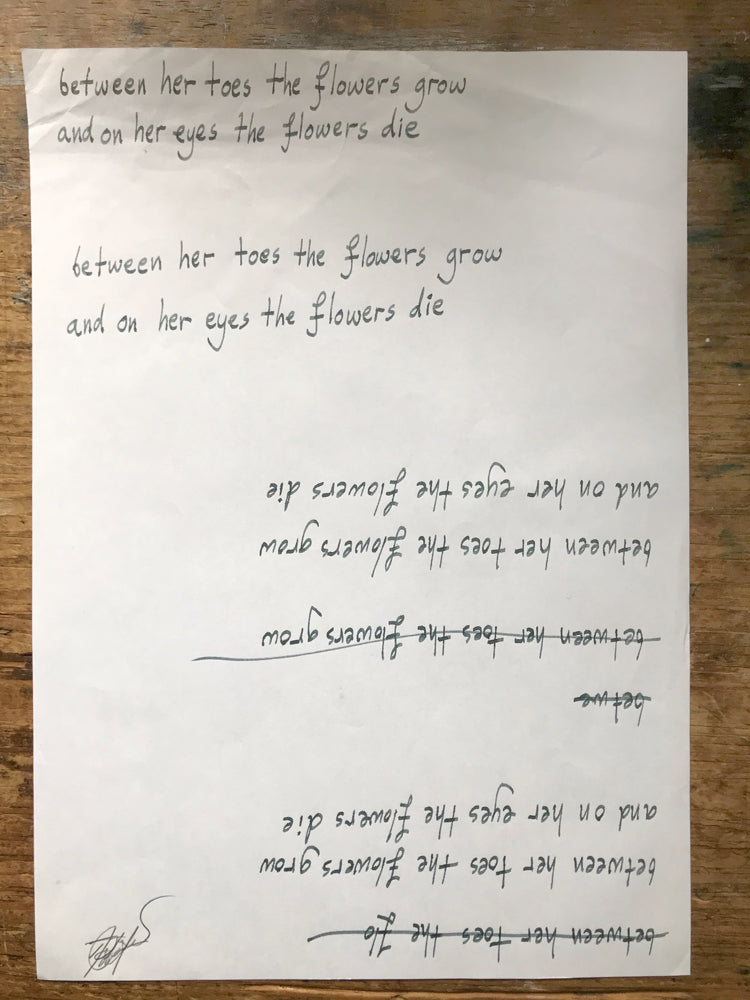 between her toes the flowers grow
and on her eyes the flowers die
between her toes the flowers grow
and on her eyes the flowers die
between her toes the flo
between her toes the flowers grow
and on her eyes the flowers die
betwe
between her toes the flowers grow
between her toes the flowers grow
and on her eyes the flowers die